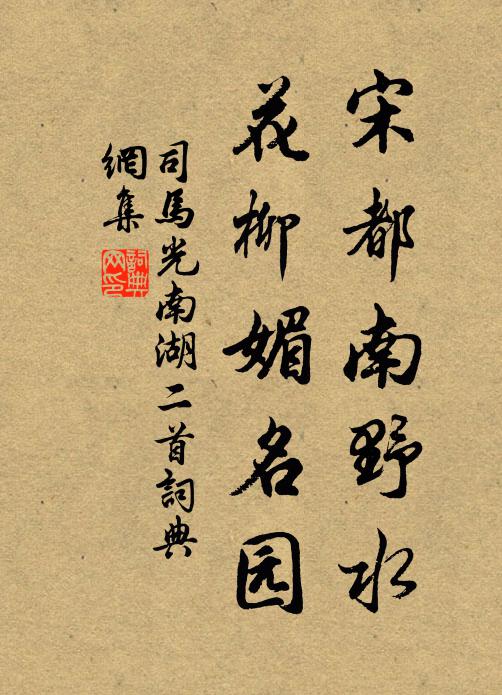 宋都南野水
花柳媚名园
司馬光南湖二首詞典
網集
詞典
网印